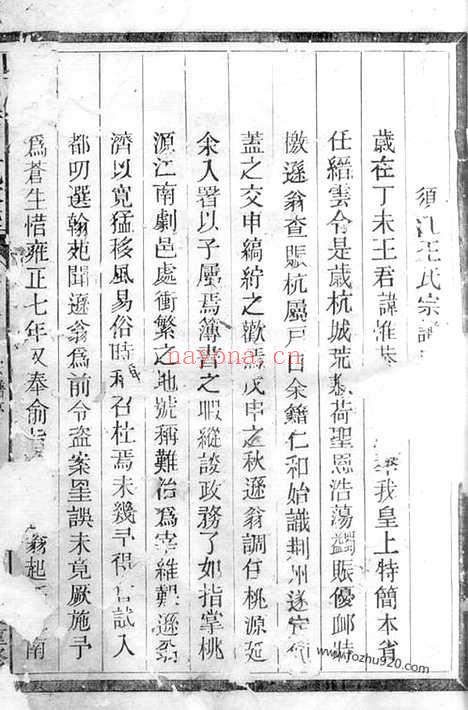 須江王氏宗譜
歲在丁未王君諱惟 我皇上特簡本省
任縉雲令是歲杭城荒 荷聖恩浩蕩蠲賑優卹特
檄遜翁查賑杭屬戶口余籍仁和始識荆州遂
蓋之交申縞紵之歡焉戊申之秋遜翁調任桃源延
余入署以子屬焉簿書之暇縱談政務了如指掌桃
源江南劇邑處衝繁之地號稱難治爲宰維艱遜翁
濟以寬猛移風易俗時稱召杜焉未幾予 試入
都叨選翰苑聞遜翁爲前令盜案罣誤未竟厥施予
爲蒼生惜雍正七年又奉俞 翁起 南
nayona.cn
www.fozhu920.com